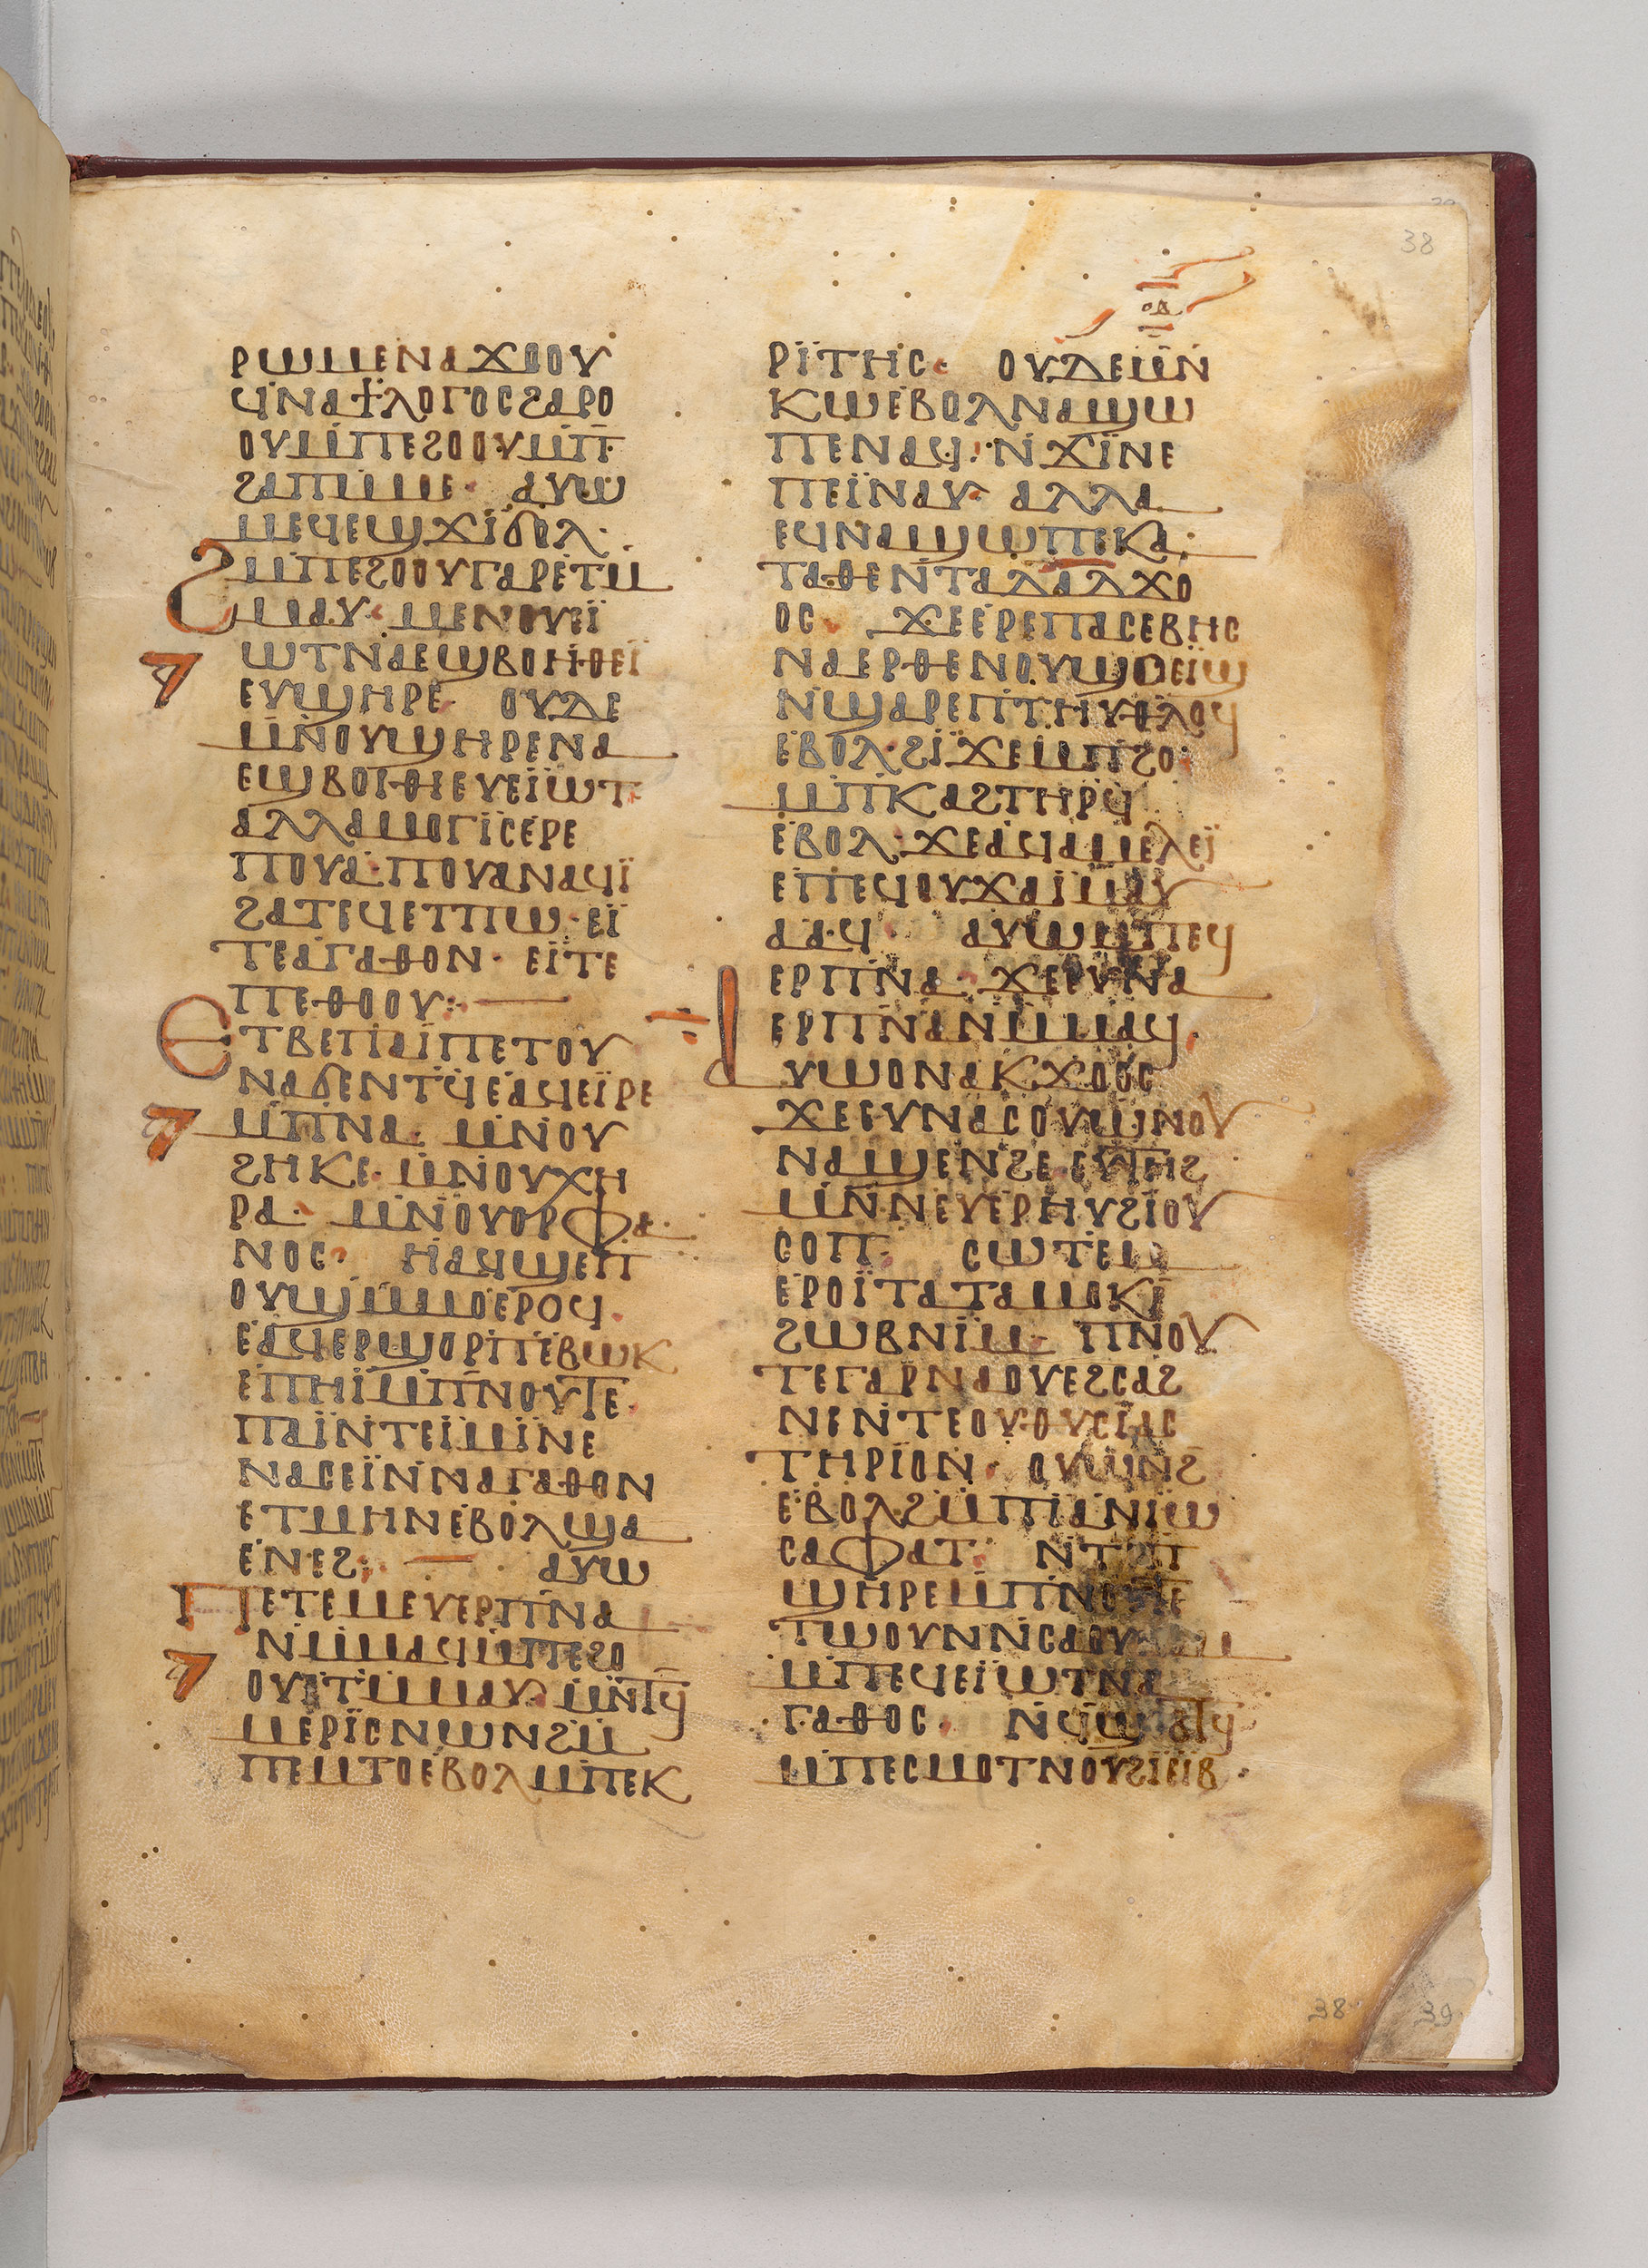 38
ⲟⲁ
ⲣⲱⲙⲉⲛⲁϫⲟⲟⲩ
ϥⲛⲁϯⲗⲟⲅⲟⲥϩⲁⲣⲟ
ⲟⲩⲙ̄ⲡⲉϩⲟⲟⲩⲙ̄ⲡ̄
ϩⲁⲡⲙ̄ⲙⲉ· ⲁⲩⲱ
ⲙⲉϥⲉϣϫⲓϭⲟⲗ·
ϩⲙ̄ⲡⲉϩⲟⲟⲩⲅⲁⲣⲉⲧⲙ̄
ⲙⲁⲩ· ⲙⲉⲛⲟⲩⲉⲓ̈
ⲱⲧⲛⲁⲉϣⲃⲟⲏⲑⲉⲓ̈
ⲉⲩϣⲏⲣⲉ· ⲟⲩⲇⲉ
ⲙ̄ⲛⲟⲩϣⲏⲣⲉⲛⲁ
ⲉϣⲃⲟⲓⲑⲓⲉⲩⲉⲓ̈ⲱⲧ·
ⲁⲗⲗⲁⲙⲟⲅⲓⲥⲉⲣⲉ
ⲡⲟⲩⲁ·ⲡⲟⲩⲁⲛⲁϥⲓ̈
ϩⲁⲧⲉϥⲉⲧⲡⲱ·ⲉⲓ̈
ⲧⲉⲁⲅⲁⲑⲟⲛ· ⲉⲓ̈ⲧⲉ
ⲡⲉⲑⲟⲟⲩ:—
ⲉⲧⲃⲉⲡⲁⲓ̈ⲡⲉⲧⲟⲩ
ⲛⲁϭⲉⲛⲧϥⲉⲁϥⲉⲓ̈ⲣⲉ
ⲙ̄ⲡⲛⲁ· ⲙ̄ⲛⲟⲩ
ϩⲏⲕⲉ· ⲙ̄ⲛⲟⲩⲭⲏ
ⲣⲁ· ⲙ̄ⲛⲟⲩⲟⲣⲫⲁ
ⲛⲟⲥ· ⲛⲁϥϣⲉⲡ
ⲟⲩϣⲙ̄ⲙⲟⲉⲣⲟϥ·
ⲉⲁϥⲉⲣϣⲟⲣⲡⲉⲃⲱⲕ
ⲉⲡⲏⲓ̈ⲙ̄ⲡⲛⲟⲩⲧⲉ·
ⲡⲁⲓ̈ⲛⲧⲉⲓ̈ⲙⲓ̈ⲛⲉ
ⲛⲁⲥⲉⲓ̈ⲛⲛⲁⲅⲁⲑⲟⲛ
ⲉⲧⲙⲏⲛⲉⲃⲟⲗϣⲁ
ⲉⲛⲉϩ: — ⲁⲩⲱ
ⲡⲉⲧⲉⲙⲉⲩⲉⲣⲡⲛⲁ
ⲛⲙ̄ⲙⲁϥⲙ̄ⲡⲉϩⲟ
ⲟⲩⲉⲧⲙ̄ⲙⲁⲩ· ⲙ̄ⲛⲧϥ
ⲙⲉⲣⲓ̈ⲥⲛⲱⲛϩⲙ̄
ⲡⲉⲙⲧⲟⲉⲃⲟⲗⲙ̄ⲡⲉⲕ
ⲣⲓ̈ⲧⲏⲥ· ⲟⲩⲇⲉⲙ̄ⲛ
ⲕⲱⲉⲃⲟⲗⲛⲁϣⲱ
ⲡⲉⲛⲁϥ·ⲛϫⲓ̈ⲛⲉ
ⲡⲉⲓ̈ⲛⲁⲩ· ⲁⲗⲗⲁ
ⲉϥⲛⲁϣⲱⲡⲉⲕⲁ·
ⲧⲁⲑⲉⲛⲧⲁⲇⲁⲇϫⲟ
ⲟⲥ ϫⲉⲉⲣⲉⲡⲁⲥⲉⲃⲏⲥ
ⲛⲁⲉⲣⲑⲉⲛⲟⲩϣⲟⲉⲓ̈ϣ
ⲛϣⲁⲣⲉⲡⲧⲏⲩⲑⲗⲟϥ
ⲉⲃⲟⲗ·ϩⲓ̈ϫⲉⲙⲡϩⲟ·
ⲙ̄ⲡⲕⲁϩⲧⲏⲣϥ
ⲉⲃⲟⲗ·ϫⲉⲁϥⲁⲙⲉⲗⲉⲓ̈
ⲉⲡⲉϥⲟⲩϫⲁⲓ̈ⲙⲁⲩ
ⲁⲁϥ· ⲁⲩⲱⲙⲡⲉϥ
ⲉⲣⲡⲛⲁ· ϫⲉⲉⲩⲛⲁ
ⲉⲣⲡⲛⲁⲛⲙ̄ⲙⲁϥ·
ⲁⲩⲱⲟⲛⲁⲕϫⲟⲟⲥ
ϫⲉⲉⲩⲛⲁⲥⲟⲩⲱⲛⲟⲩ
ⲛⲁϣⲉⲛϩⲉ·ⲉⲩⲧⲏϩ
ⲙ̄ⲛⲛⲉⲩⲉⲣⲏⲩϩⲓ̈ⲟⲩ
ⲥⲟⲡ· ⲥⲱⲧⲉⲙ
ⲉⲣⲟⲓ̈ⲧⲁⲧⲁⲙⲟⲕⲓ̈
ϩⲱⲃⲛⲓ̈ⲙ· ⲡⲛⲟⲩ
ⲧⲉⲅⲁⲣⲛⲁⲟⲩⲉϩⲥⲁϩ
ⲛⲉⲛⲧⲉⲟⲩⲑⲩⲥⲓ̈ⲁⲥ
ⲧⲏⲣⲓ̈ⲟⲛ· ⲟⲩⲱⲛϩ
ⲉⲃⲟⲗ·ϩⲙ̄ⲡⲓⲁⲛⲓ̈ⲱ
ⲥⲁⲫⲁⲧ· ⲛⲧⲉⲡ
ϣⲏⲣⲉⲙ̄ⲡⲛⲟⲩⲧⲉ
ⲧⲱⲟⲩⲛⲛⲥⲁⲟⲩ
ⲙ̄ⲡⲉϥⲉⲓ̈ⲱⲧⲛⲁ
ⲅⲁⲑⲟⲥ· ⲛϥϣⲃⲧϥ
ⲙ̄ⲡⲉⲥⲙⲟⲧⲛⲟⲩϩⲓⲉⲓ̈ⲃ·
38 39